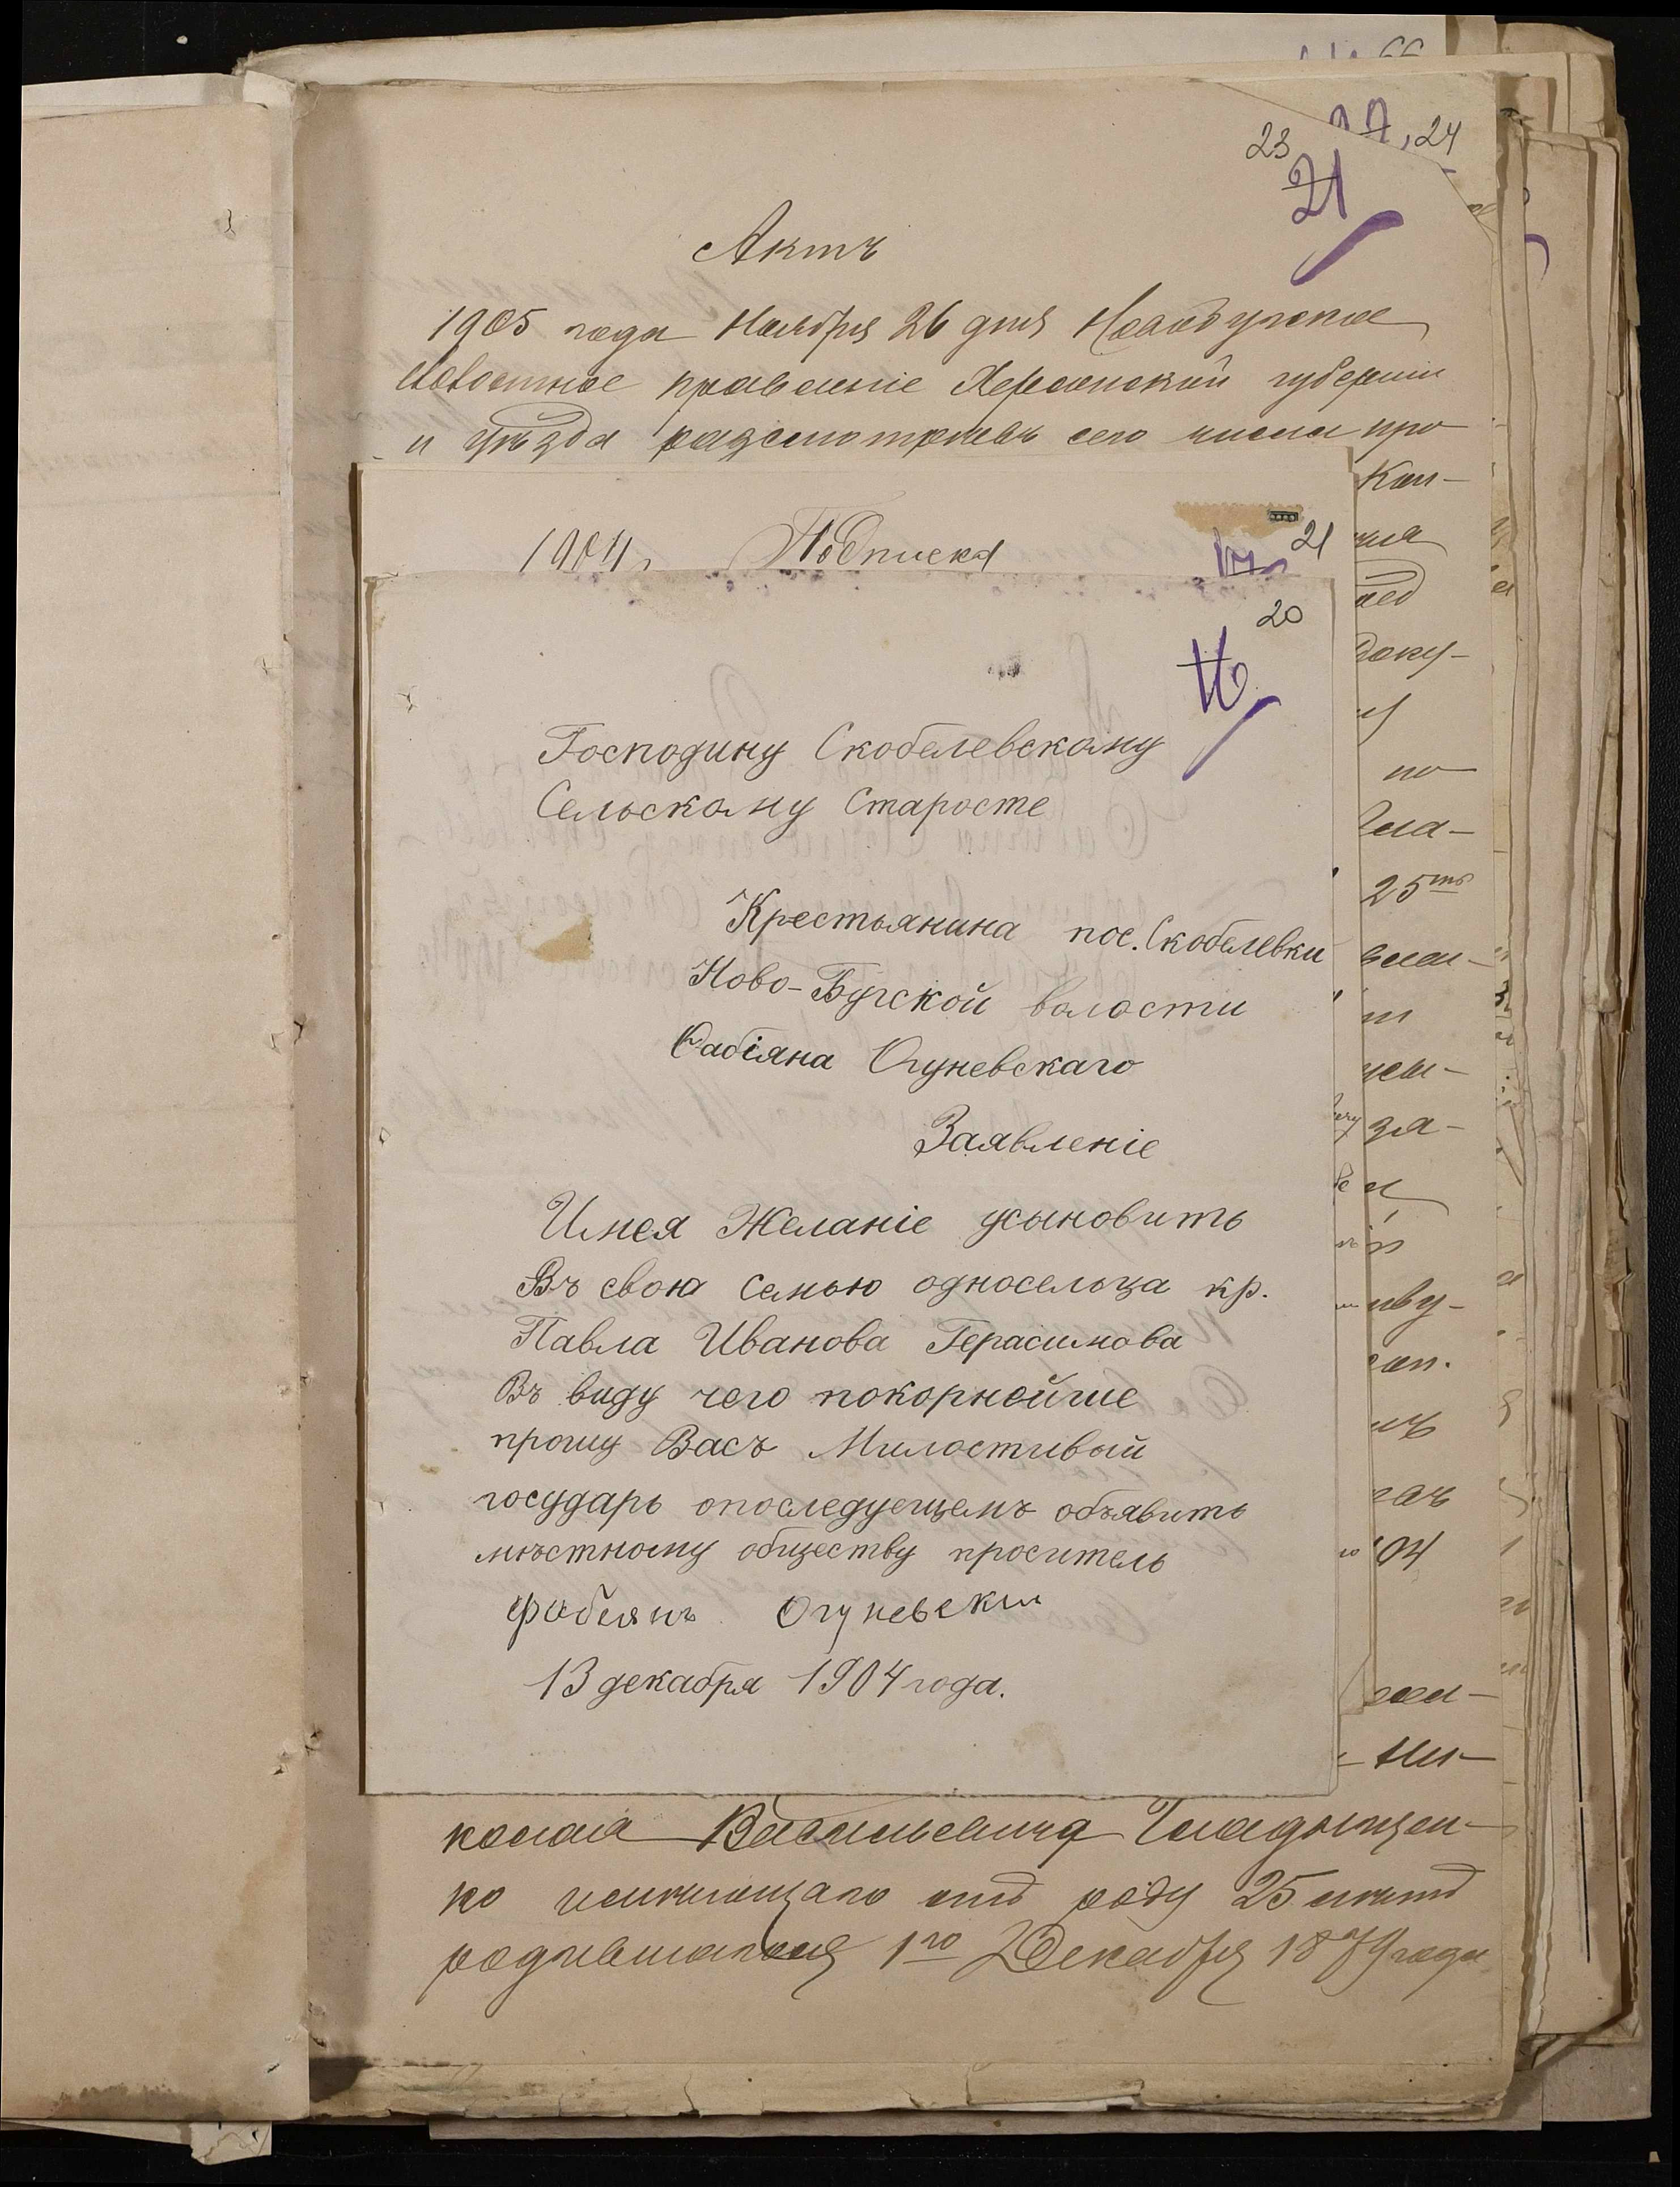 23
24
21
Актъ
1905 года Ноября 26 дня Новобугское
Волостное правленіе Херсонской губерніи
и уѣзда разсмотрѣвъ сего числа про
1904 г. Подписка
21
20
16
Господину Скобелевскому
Сельскому Старосте
Крестьянина пос. Скобелевки
Ново-Бугской волости
Фабіяна Огуневскаго
Заявленіе
Имея Желаніе усыновить
Въ свою Семью односельца кр.
Павла Иванова Герасимова
Въ виду чего покорнейше
прошу Васъ Милостивый
государь опоследуещемъ объявить
мѣстному обществу проситель
Фабиянъ Огуневски
13 декабря 1904 года.
Кол-
доку-
по
25
за-
04
Ни-
колая Васильевича Гладышен-
ко имеющаго отъ роду 25 лѣтъ
родившагося 1го Декабря 1879 года